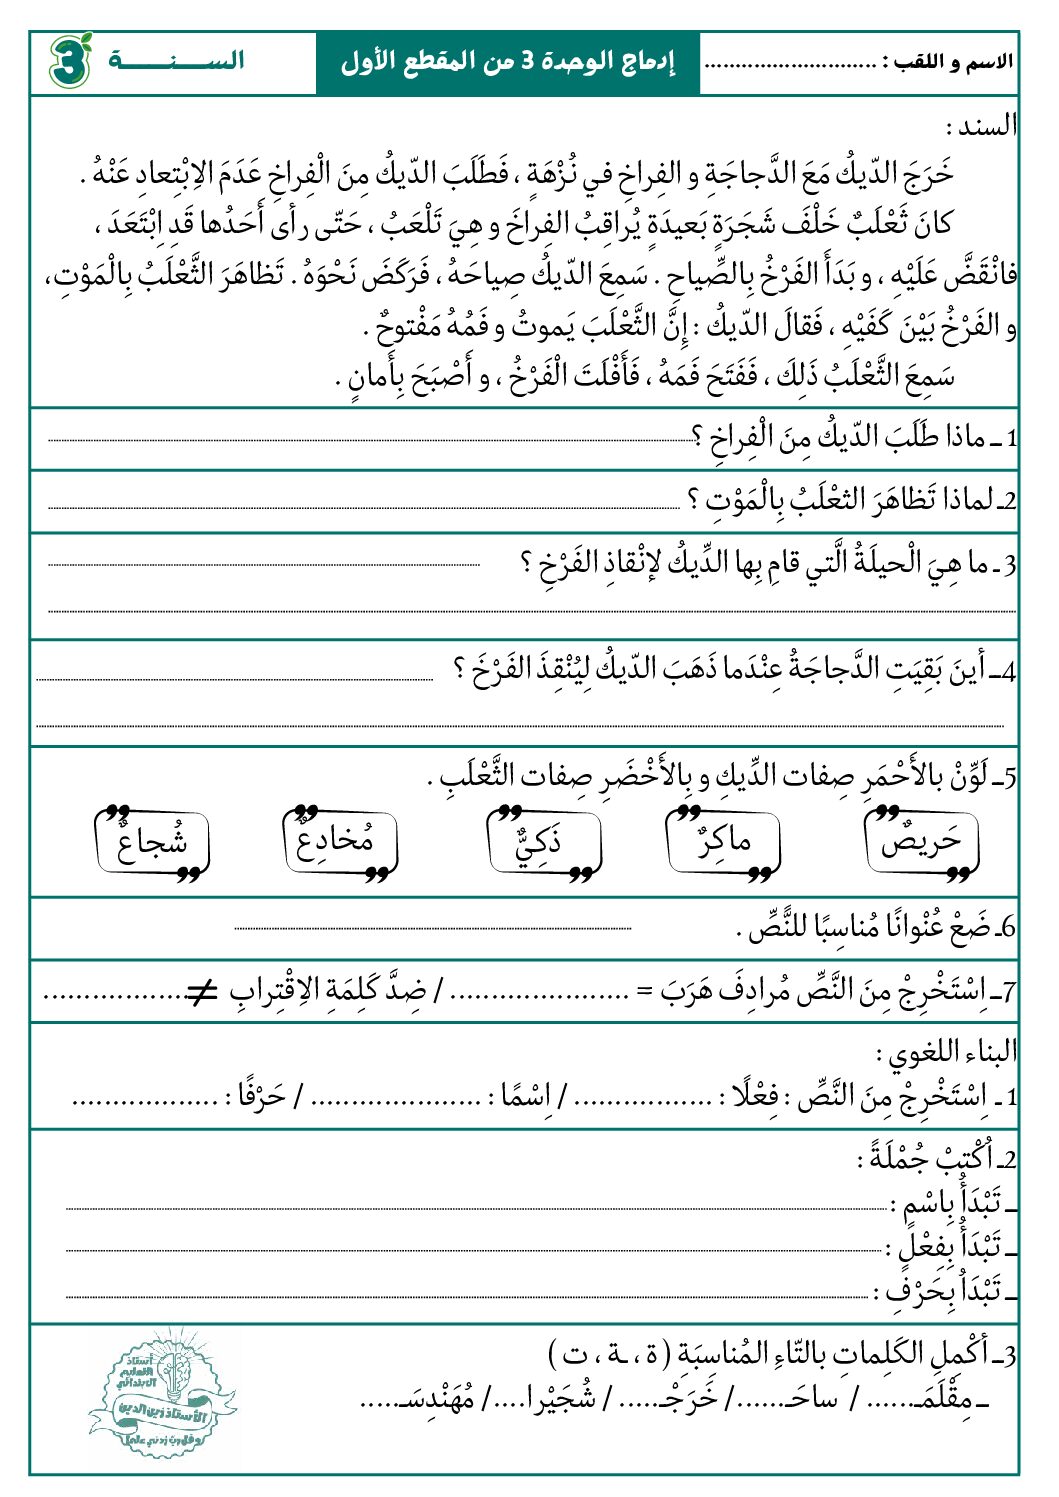 الاسم و اللقب : ............................
إدماج الوحدة 3 من المقطع الأول
الســـنـــــة 3
السند :
خَرَجَ الدّيكُ مَعَ الدَّجاجَةِ و الفِراخِ في نُزْهَةٍ ، فَطَلَبَ الدّيكُ مِنَ الْفِراخِ عَدَمَ الاِبْتِعادِ عَنْهُ .
كانَ ثَعْلَبٌ خَلْفَ شَجَرَةٍ بَعيدَةٍ يُراقِبُ الفِراخَ و هِيَ تَلْعَبُ ، حَتّى رأى أَحَدُها قَدِ اِبْتَعَدَ ،
فانْقَضَّ عَلَيْهِ ، و بَدَأَ الفَرْخُ بِالصِّياحِ . سَمِعَ الدّيكُ صِياحَهُ ، فَرَكَضَ نَحْوَهُ . تَظاهَرَ الثَّعْلَبُ بِالْمَوْتِ،
و الفَرْخُ بَيْنَ كَفَيْهِ ، فَقالَ الدّيكُ : إِنَّ الثَّعْلَبَ يَموتُ و فَمُهُ مَفْتوحٌ .
سَمِعَ الثَّعْلَبُ ذَلِكَ ، فَفَتَحَ فَمَهُ ، فَأَفْلَتَ الْفَرْخُ ، و أَصْبَحَ بِأَمانٍ .
1 ـ ماذا طَلَبَ الدّيكُ مِنَ الْفِراخِ ؟
2ـ لماذا تَظاهَرَ الثعْلَبُ بِالْمَوْتِ ؟
3 ـ ما هِيَ الْحيلَةُ الَّتي قامِ بِها الدِّيكُ لإنْقاذِ الفَرْخِ ؟
4ـ أينَ بَقِيَتِ الدَّجاجَةُ عِنْدَما ذَهَبَ الدّيكُ لِيُنْقِذَ الفَرْخَ ؟
5ـ لَوِّنْ بالأَحْمَرِ صِفات الدِّيكِ و بِالأَخْضَرِ صِفات الثَّعْلَبِ .
حَريصٌ ماكِرٌ ذَكِيٌّ مُخادِعٌ شُجاعٌ
6ـ ضَعْ عُنْوانًا مُناسِبًا للنَّصِّ .
7ـ اِسْتَخْرِجْ مِنَ النَّصِّ مُرادِفَ هَرَبَ = ...................... / ضِدَّ كَلِمَةِ الاِقْتِرابِ ≠..................
البناء اللغوي :
1 ـ اِسْتَخْرِجْ مِنَ النَّصِّ : فِعْلًا : ................. / اِسْمًا : ..................... / حَرْفًا : ..................
2ـ اُكْتبْ جُمْلَةً :
ـ تَبْدَأُ بِاسْمٍ :
ـ تَبْدَأُ بِفِعْلٍ :
ـ تَبْدَأُ بِحَرْفِ :
3ـ أكْمِلِ الكَلِماتِ بالتّاءِ المُناسِبَةِ ( ة ، ـة ، ت )
ـ مِقْلَمَـ...... / ساحَـ....../ خَرَجْـ..... / شُجَيْرا..../ مُهَنْدِسَـ.....
أستاذ
التعليم
الابتدائي
الأستاذ زين الدين
وقل رب زدني علما